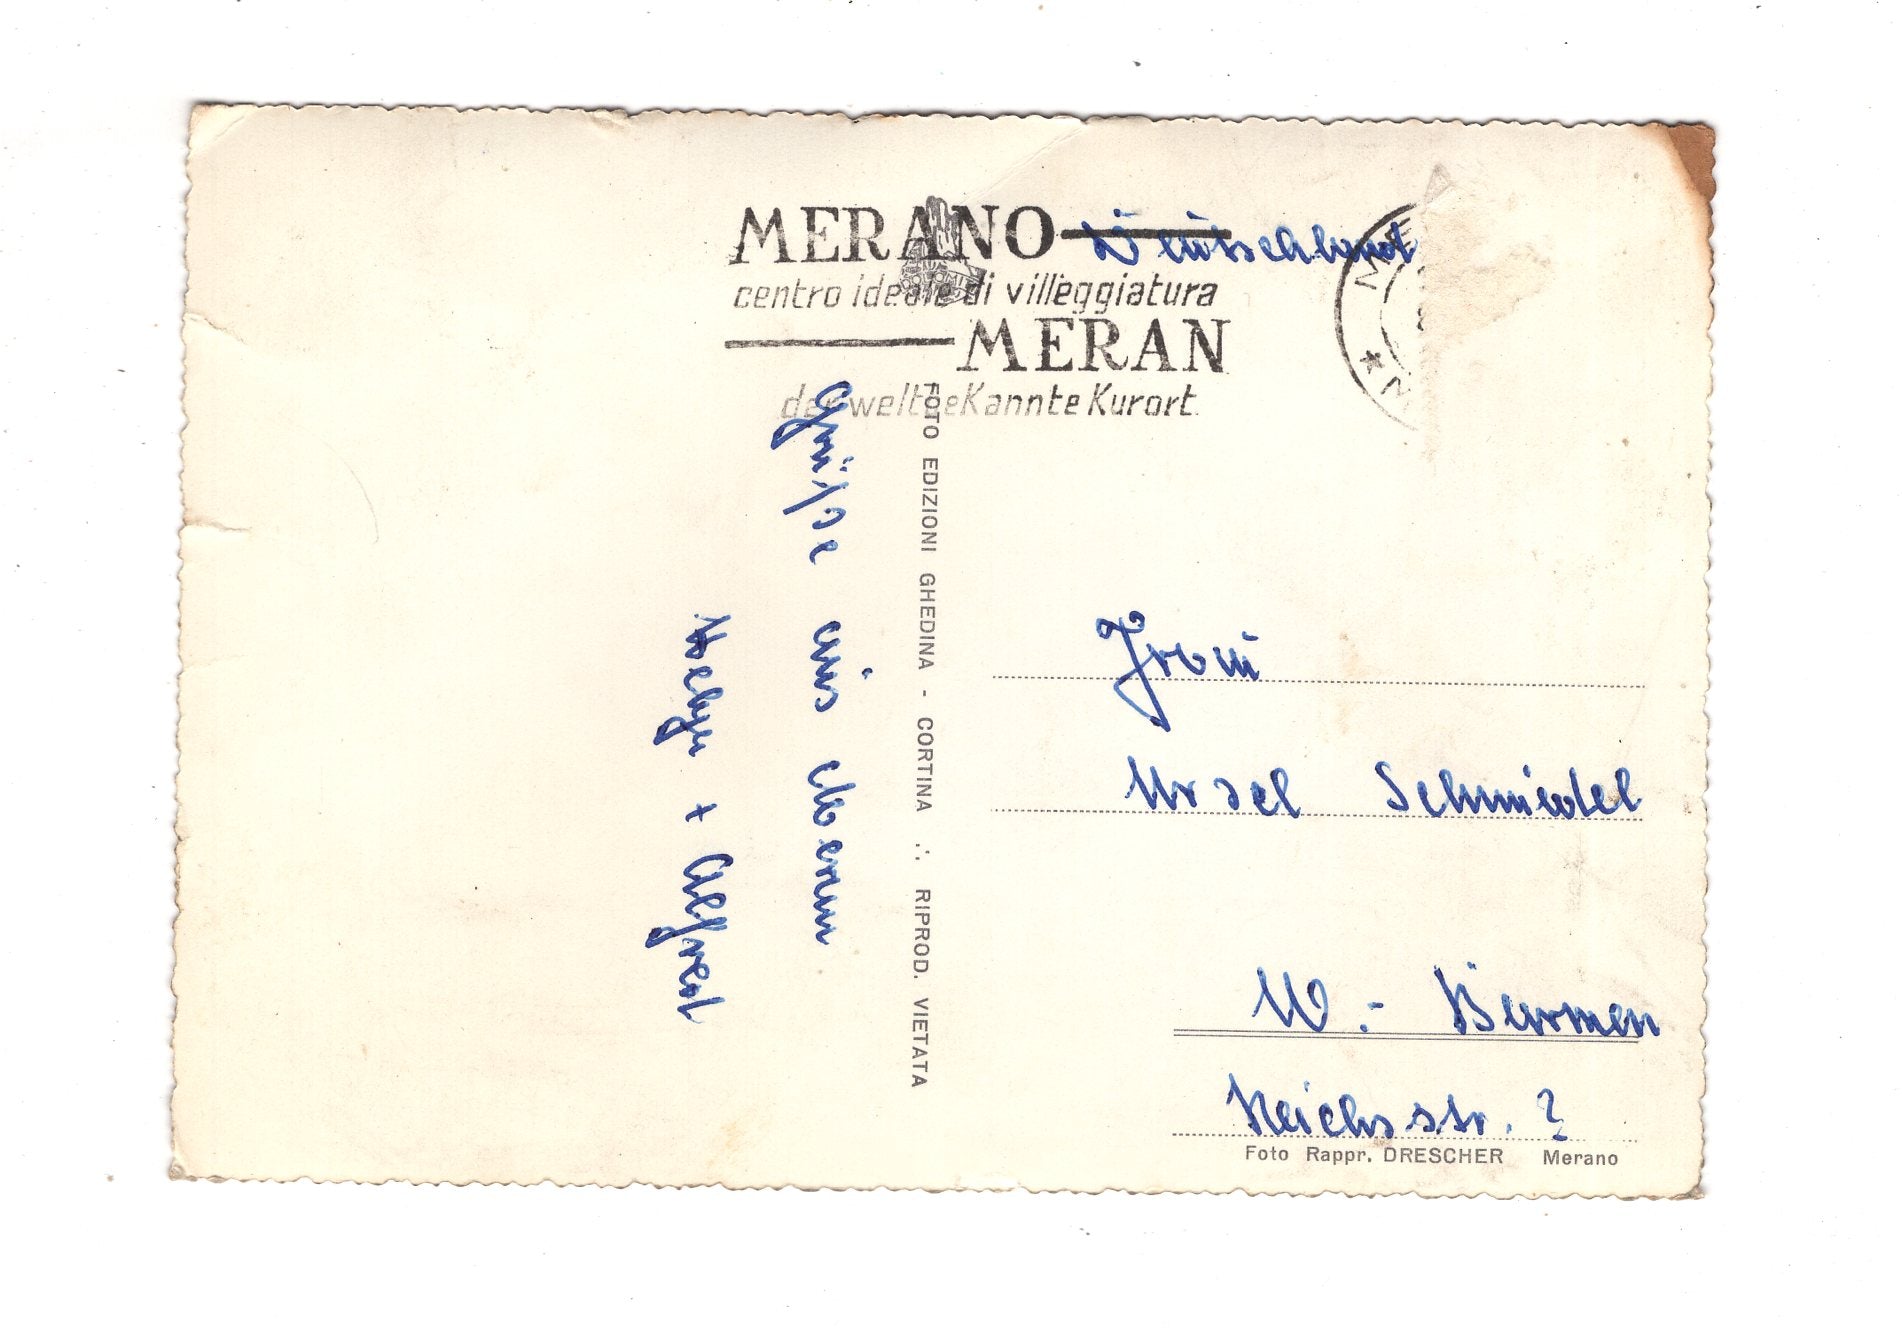 MERANO
centro ideale di villeggiatura
MERAN
der weltbekannte Kurort.
Deutschland
Grüße aus Meran
Helga + Alfred
FOTO EDIZIONI GHEDINA - CORTINA ∴ RIPROD. VIETATA
Frau
Ursel Schmiedel
W.- Barmen
Reichsstr. ?
Foto Rappr. DRESCHER Merano